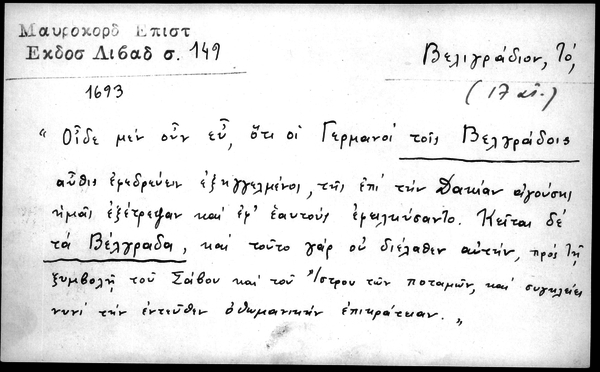 Μαυροκορδ Επιστ
Εκδοσ Λιβαδ σ. 149
Βελιγράδιον, τό,
1693
(17 αἰ.)
"Οἶδε μέν οὖν εὖ, ὅτι οἱ Γερμανοί τοῖς Βελγράδοις
αὖθις ἐφεδρεύειν ἐξηγγελμένοι, τῆς ἐπί τήν Δακίαν ἀγούσης
ἡμᾶς ἐξέτρεψαν καί ἐφ' ἑαυτούς ἐφειλκύσαντο. Κεῖται δέ
τά Βέλγραδα, καί τοῦτο γάρ οὐ διέλαθεν αὐτήν, πρός τῇ
ξυμβολῇ τοῦ Σάβου καί τοῦ Ἴστρου τῶν ποταμῶν, καί συγκλείει
νυνί τήν ἐντεῦθεν ὀθωμανικήν ἐπικράτειαν. "